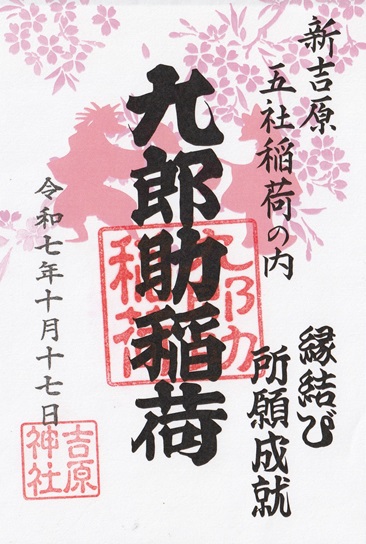 新吉原
五社稲荷の内
縁結び
所願成就
九郎助稲荷
九郎助
稲荷
令和七年十月十七日
吉原
神社